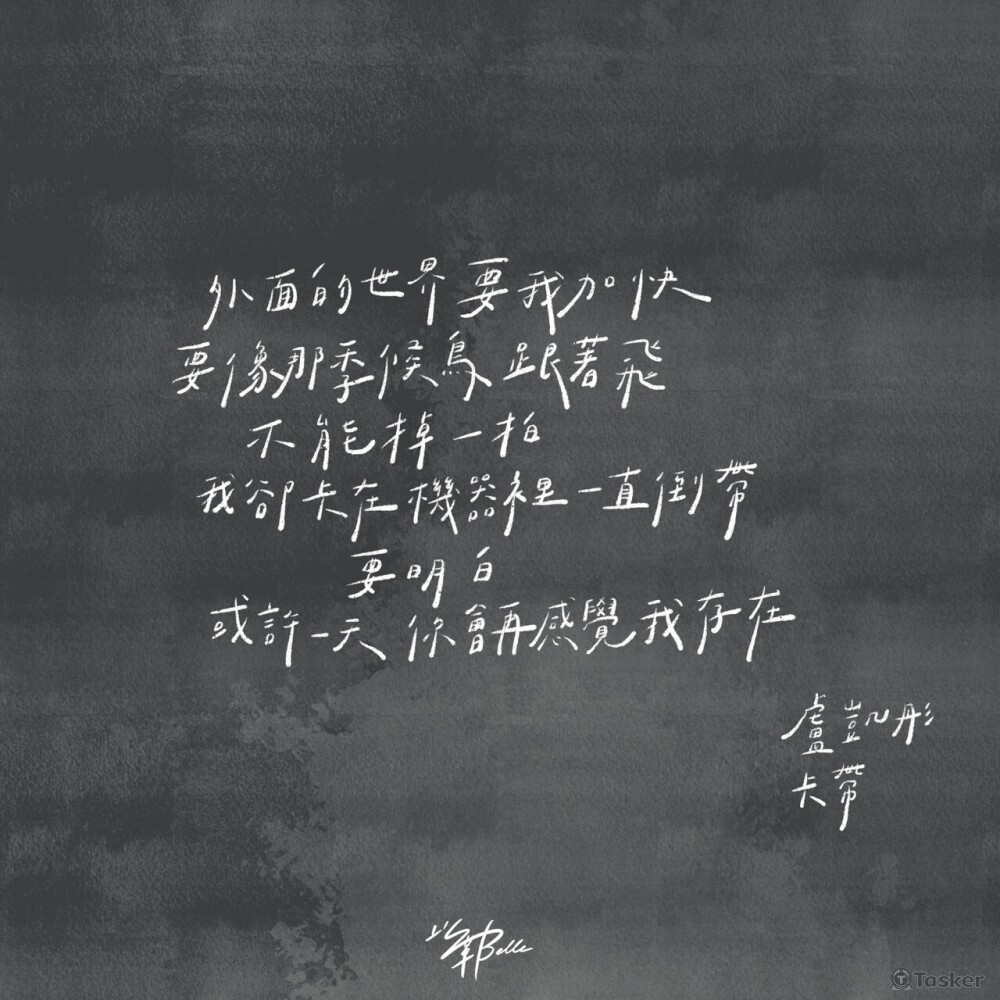 外面的世界要我加快
要像那季候鳥 跟著飛
不能掉一拍
我卻卡在機器裡一直倒帶
要明白
或許一天 你會再感覺我存在
盧凱彤
卡帶
Belle
Tasker